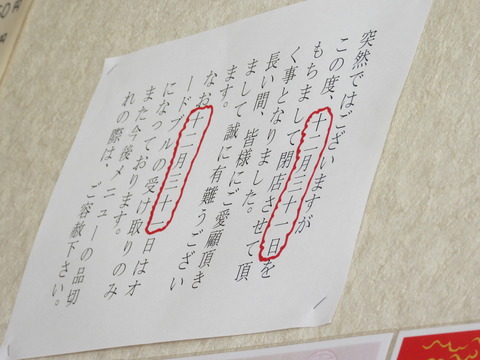 突然ではございますが
この度、十二月三十一日を
もちまして閉店させて頂
く事となりました。
長い間、皆様にご愛顧頂き
まして誠に有難うござい
ます。
なお十二月三十一日はオ
ードブルの受け取りのみ
になっております。
また今後メニューの品切
れの際は、ご容赦下さい。